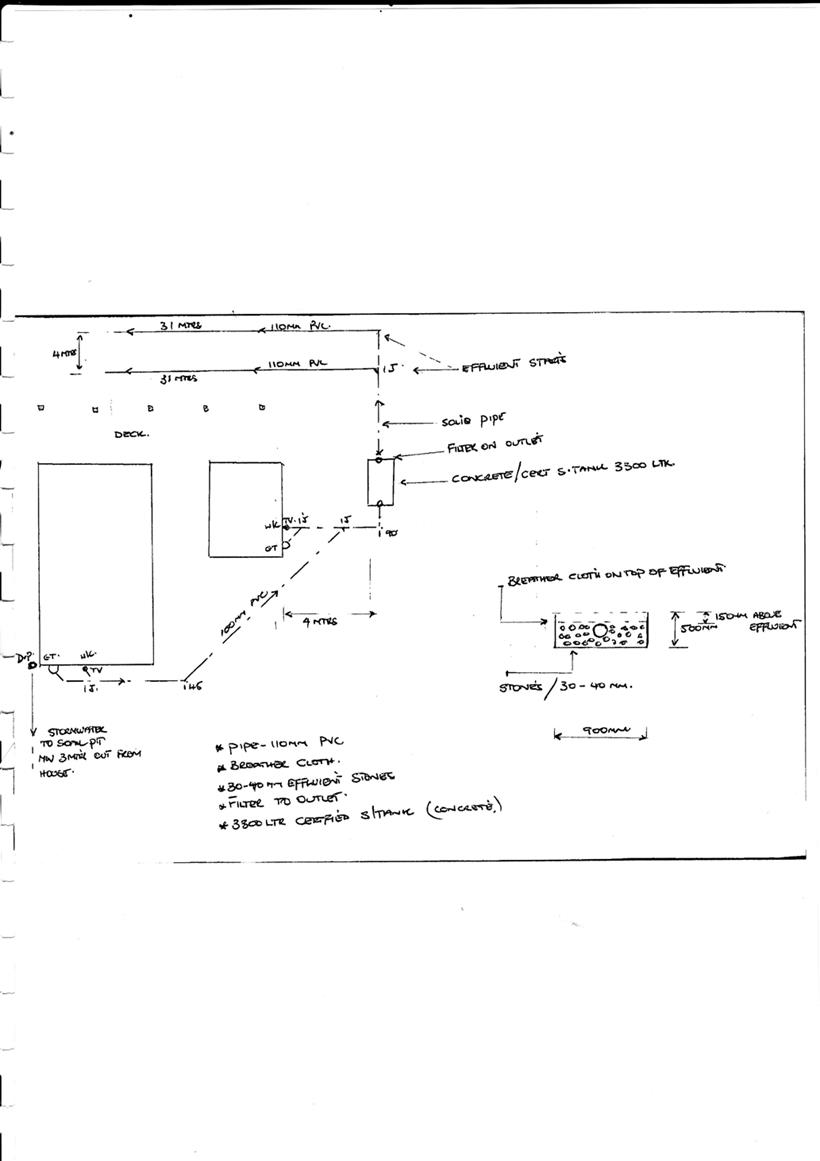 31 MTRS
110MM PVC.
4 MTRS
110MM PVC
31 MTRS
IJ.
EFFLUIENT
DECK.
SOLID PIPE
FILTER ON OUTLET
CONCRETE/CERT S.TANK 3300 LTR.
WK TV. IJ
IJ
90
GT
100MM PVC
4 MTRS
BREATHER CLOTH ON TOP OF EFFLUIENT
150MM ABOVE
EFFLUIENT
500MM
STONES / 30-40 MM.
900MM
D.P.
GT.
WK.
TV
IJ.
45
STORMWATER
TO SOAK PIT
3 MTR OUT FROM
HOUSE.
* PIPE - 110MM PVC
* BREATHER CLOTH.
* 30-40 MM EFFLUIENT STONES
* FILTER TO OUTLET.
* 3300 LTR CERTFIED S/TANK (CONCRETE)